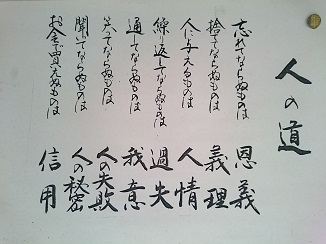 人の道
忘れてならぬものは 恩義
捨ててならぬものは 義理
人に与えるものは 人情
繰返してならぬものは 過失
通してならぬものは 我意
笑ってならぬものは 人の失敗
聞いてならぬものは 人の秘密
お金で買えぬものは 信用